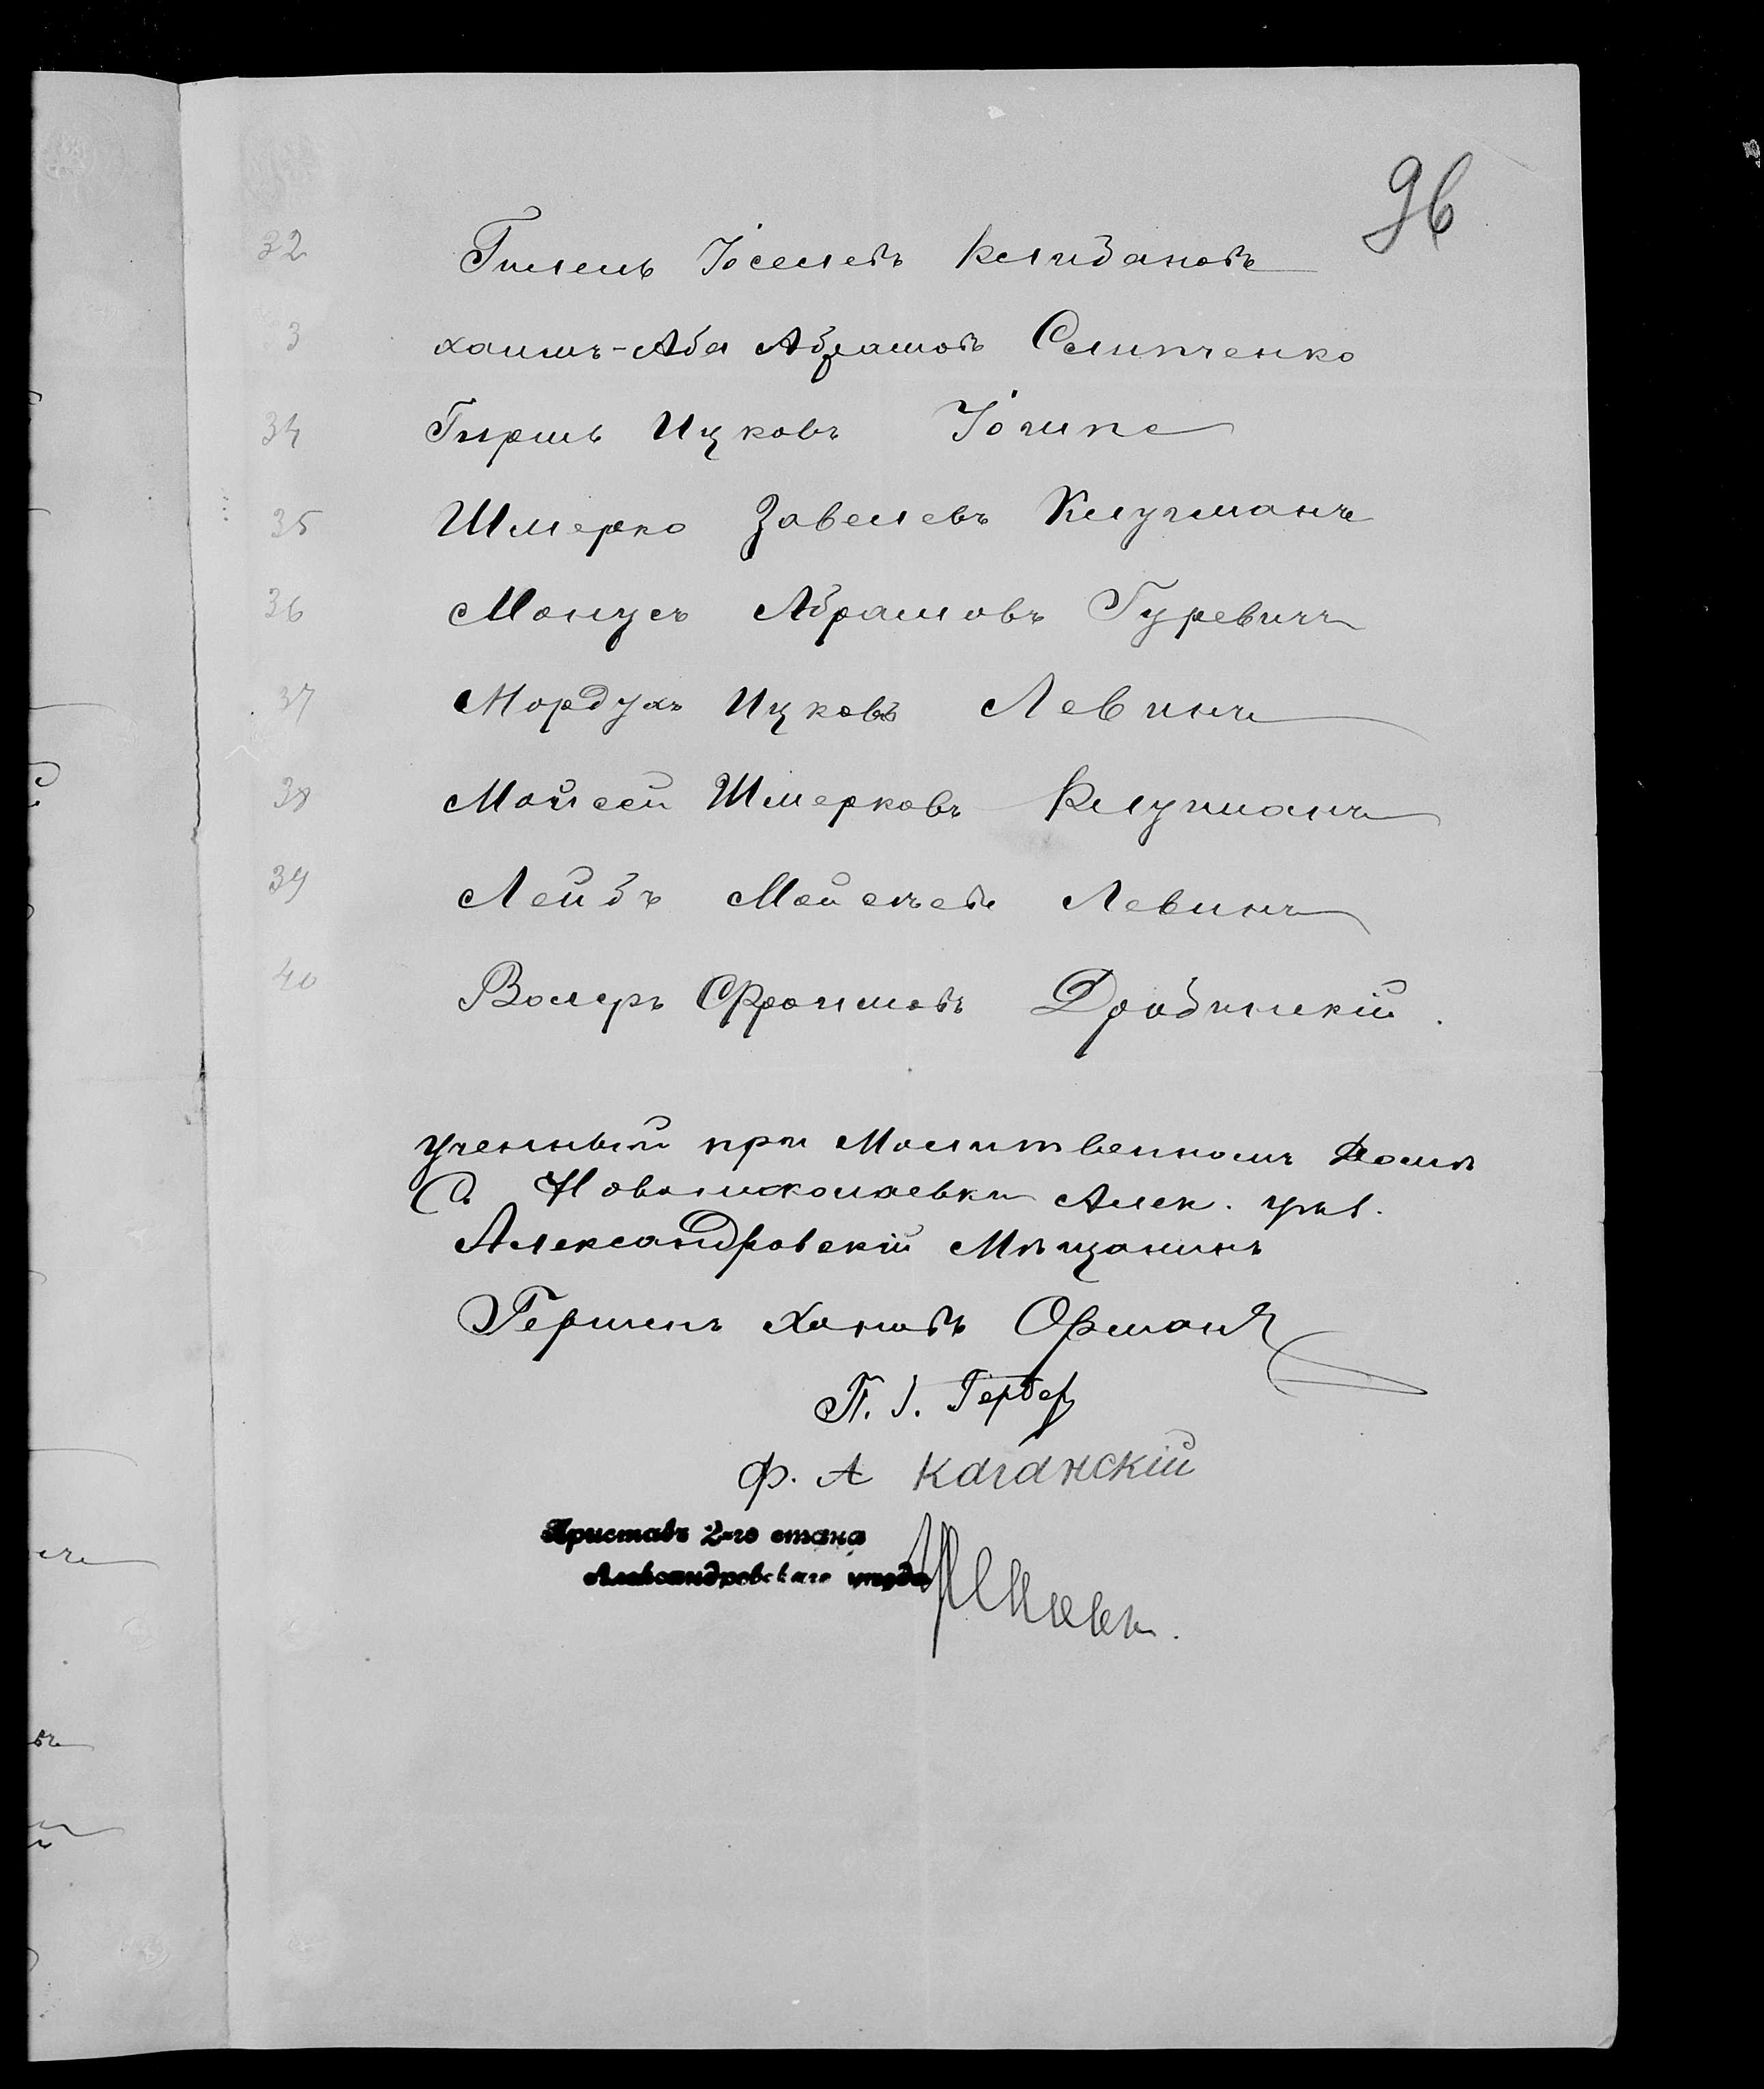 96
32 Гилель Іоселевъ Клибановъ
3 Хаимъ-Аба Абрамовъ Слипченко
34 Гиршъ Ицковъ Іогипс
35 Шмерко Завелевъ Клугманъ
36 Монусъ Абрамовъ Гуревичъ
37 Мордухъ Ицковъ Левинъ
38 Мойсей Шмерковъ Клугманъ
39 Лейбъ Мойсеевъ Левинъ
40 Волфъ Ефроимовъ Дробинскій.
Ученный при Молитвенномъ Домѣ
С. Новониколаевки Алек. уѣз.
Александровскій Мѣщанинъ
Гершенъ Хановъ Офманъ
П. І. Гербер
Ф. А Каганскій
Приставъ 2-го стана
Александровскаго уѣзда